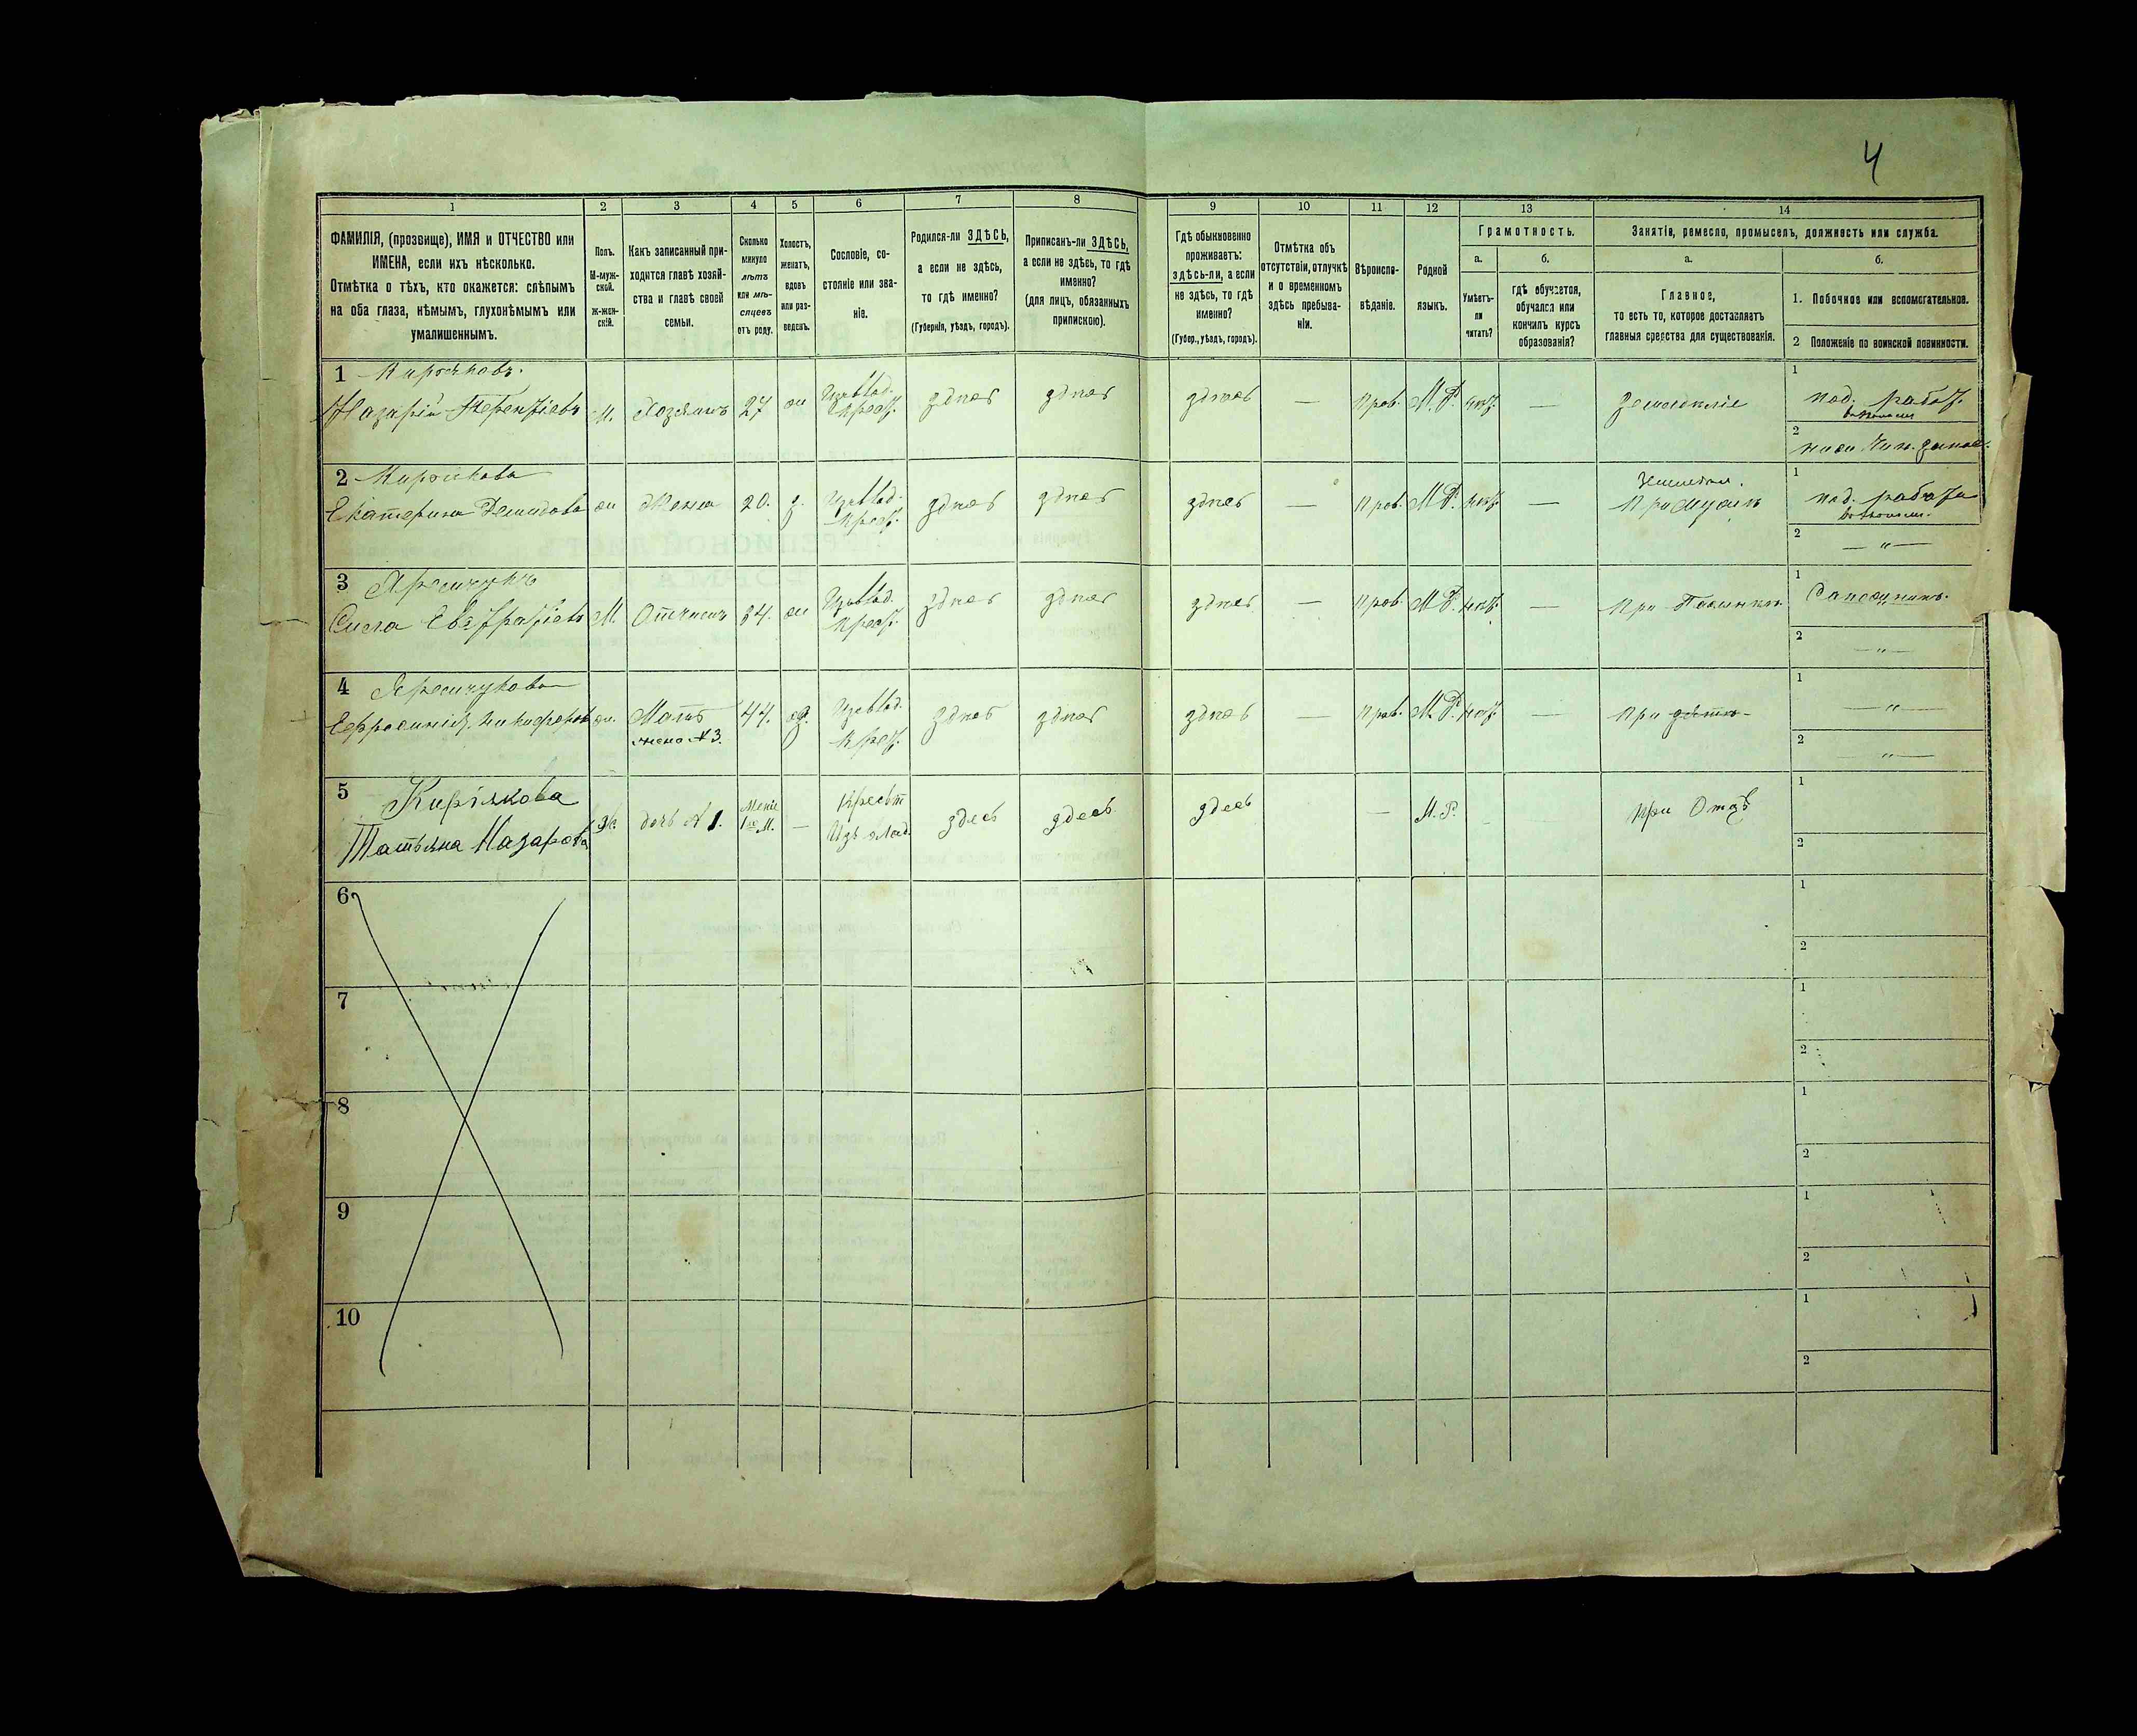 4
1 2 3 4 5 6 7 8 9 10 11 12 13 14
ФАМИЛІЯ, (прозвище), ИМЯ и ОТЧЕСТВО или
ИМЕНА, если ихъ нѣсколько.
Отмѣтка о тѣхъ, кто окажется: слѣпымъ
на оба глаза, нѣмымъ, глухонѣмымъ или
умалишеннымъ.
Полъ.
М-муж-
ской.
Ж-жен-
скій.
Какъ записанный при-
ходится главѣ хозяй-
ства и главѣ своей
семьи.
Сколько
минуло
лѣтъ
или мѣ-
сяцевъ
отъ роду.
Холостъ,
женатъ,
вдовъ
или раз-
веденъ.
Сословіе, со-
стояніе или зва-
ніе.
Родился-ли ЗДѢСЬ,
а если не здѣсь,
то гдѣ именно?
(Губернія, уѣздъ, городъ).
Приписанъ-ли ЗДѢСЬ,
а если не здѣсь, то гдѣ
именно?
(для лицъ, обязанныхъ
припискою).
Гдѣ обыкновенно
проживаетъ:
здѣсь-ли, а если
не здѣсь, то гдѣ
именно?
(Губер., уѣздъ, городъ).
Отмѣтка объ
отсутствіи, отлучкѣ
и о временномъ
здѣсь пребыва-
ніи.
Вѣроиспо-
вѣданіе.
Родной
языкъ.
Грамотность.
а.
Умѣетъ-
ли
читать?
б.
гдѣ обучается,
обучался или
кончилъ курсъ
образованія?
Занятія, ремесло, промыселъ, должность или служба.
а.
Главное,
то есть то, которое доставляетъ
главныя средства для существованія.
б.
1. Побочное или вспомогательное.
2 Положеніе по воинской повинности.
1
Назарій Терентіевъ М. Хозяинъ 27 здѣсь здѣсь здѣсь — Прав. М. Р. — Земледѣліе
1 под. работ.
2
2
Екатерина Демидова Жена 20. здѣсь здѣсь здѣсь — Прав. М. Р. — При мужѣ
1 под. работа
2 — " —
3 Яремчукъ
М. Отчимъ 34. здѣсь здѣсь здѣсь — Прав. М. Р. — При Пасынкѣ
1
2 — " —
4 Яремчукова
Мать 44. здѣсь здѣсь здѣсь — Прав. М. Р. — При
жена № 3.
1 — " —
2 — " —
5 Кирьякова
Татьяна Назарова Ж. дочь № 1. Менѣе — Крест здесь здесь здесь — М. Р. При Отцѣ
1 м. Изъ влад.
1
2
6
1
2
7
1
2
8
1
2
9
1
2
10
1
2